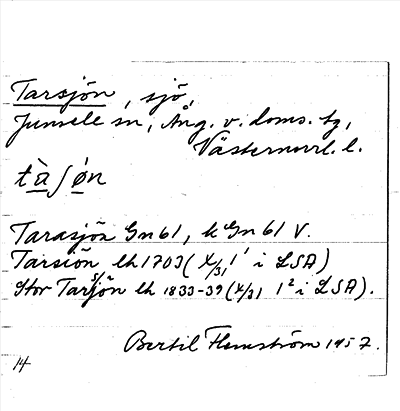 Tarsjön, sjö,
Junsele sn, Ång. v. doms. tg,
Västernorrl. l.
tàʃøn
Tarasjön Gn 61, k Gn 61 V.
Tarsiön lh 1703 (X/3, 1¹ i LSA)
Stor Tarsjön lh 1833-39 (X/3, 1² i LSA).
Bertil Flemström 1957.
14